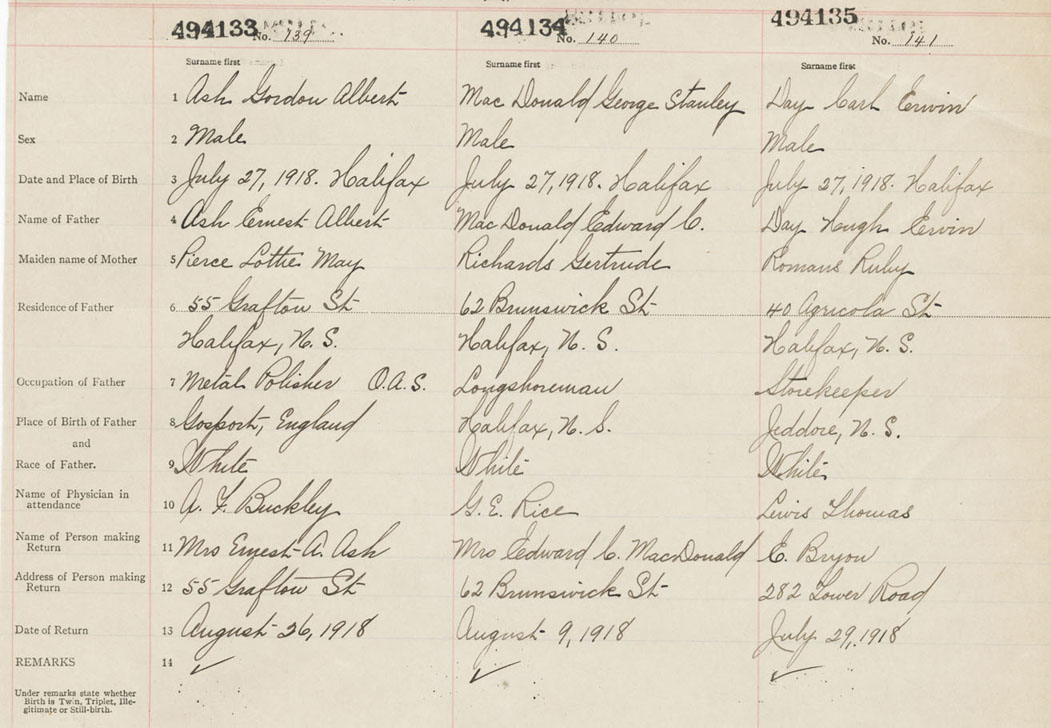 494133 No. 739 494134 No. 140 494135 No. 141
Surname first Surname first Surname first
Name 1 Ash Gordon Albert MacDonald George Stanley Day Carl Erwin
Sex 2 Male Male Male
Date and Place of Birth 3 July 27, 1918. Halifax July 27, 1918. Halifax July 27, 1918. Halifax
Name of Father 4 Ash Ernest Albert MacDonald Edward C. Day Hugh Erwin
Maiden name of Mother 5 Pierce Lottie May Richards Gertrude Romans Ruby
Residence of Father 6 55 Grafton St 62 Brunswick St 40 Agricola St
Halifax, N. S. Halifax, N. S. Halifax, N. S.
Occupation of Father 7 Metal Polisher O.A.S. Longshoreman Storekeeper
Place of Birth of Father 8 Gosport, England Halifax, N. S. Jeddore, N. S.
and
Race of Father. 9 White White White
Name of Physician in
attendance 10 A. F. Buckley G. E. Rice Lewis Thomas
Name of Person making
Return 11 Mrs Ernest A. Ash Mrs Edward C. MacDonald E. Bryon
Address of Person making
Return 12 55 Grafton St 62 Brunswick St 282 Tower Road
Date of Return 13 August 26, 1918 August 9, 1918 July 29, 1918
REMARKS 14
Under remarks state whether
Birth is Twin, Triplet, Ille-
gitimate or Still-birth.